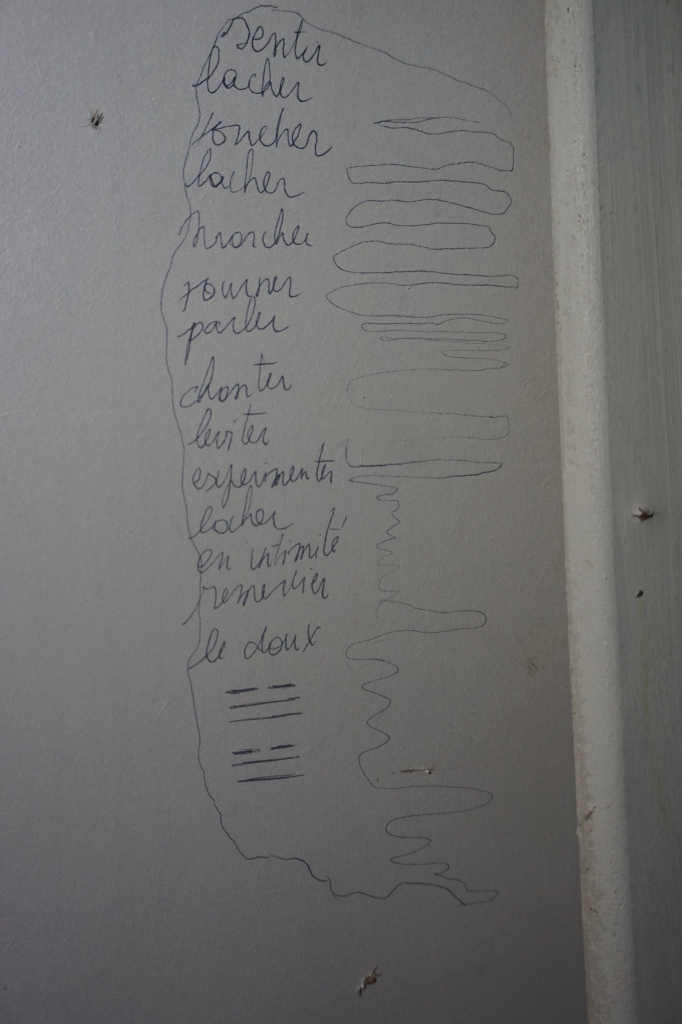 sentir
lacher
toucher
lacher
marcher
tourner
parler
chanter
leviter
experimenter
lacher
en intimité
remercier
le doux